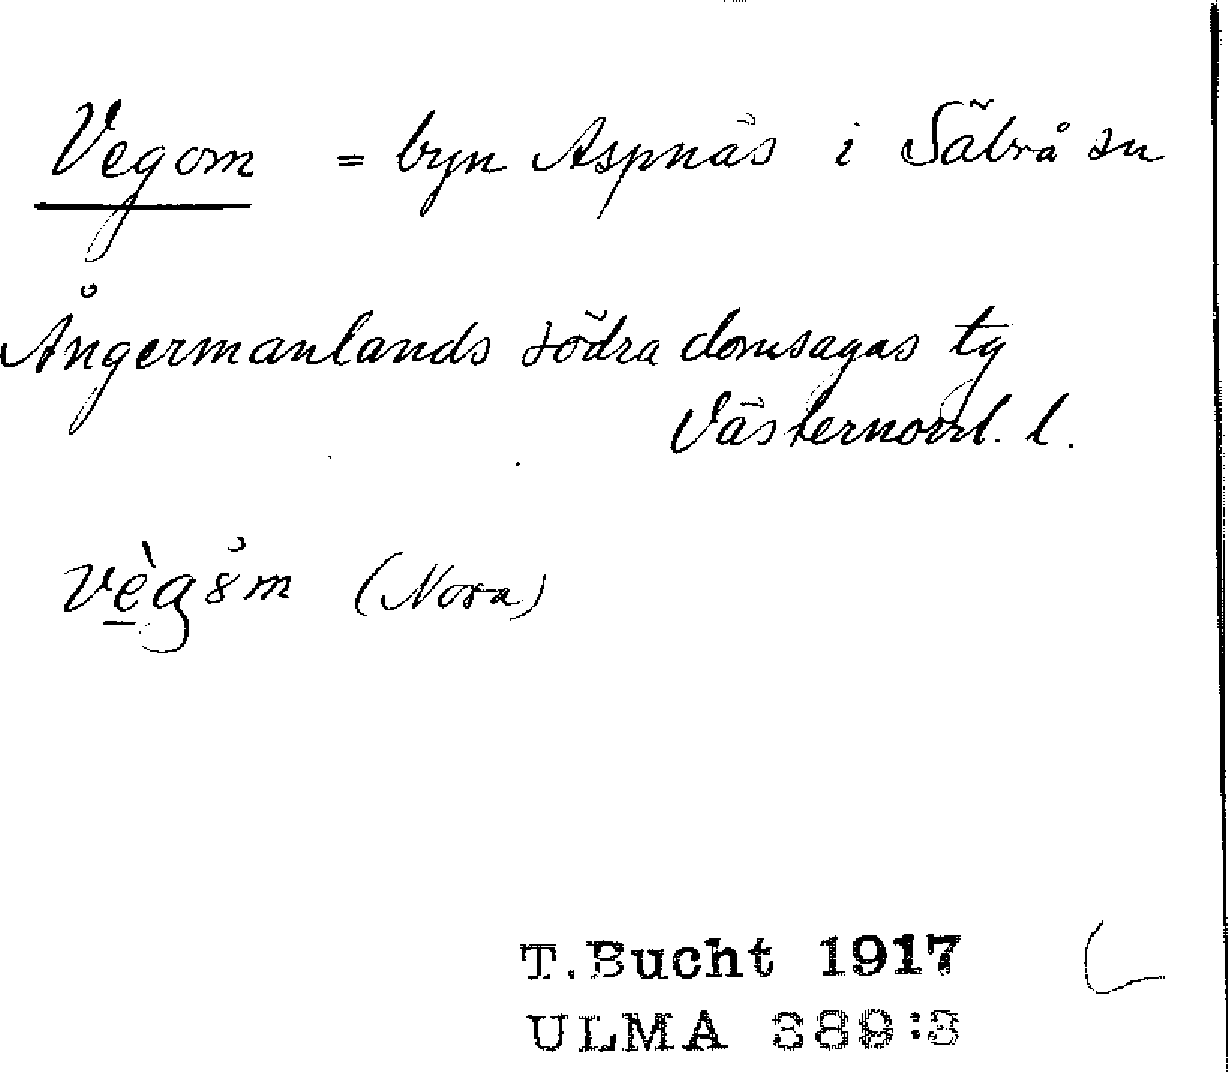 Vegom = byn Aspnäs i Säbrå sn
Ångermanlands södra domsagas tg
Västernorrl. l.
(Nora)
T.Bucht 1917
ULMA 389:3